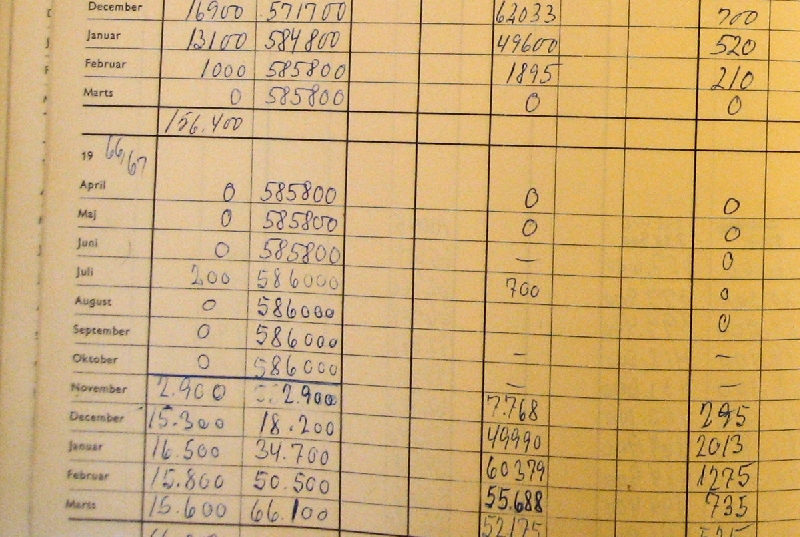 December 16900 571700 62033 700
Januar 13100 584800 49600 520
Februar 1000 585800 1895 210
Marts 0 585800 0 0
156.400
19 66/67
April 0 585800 0 0
Maj 0 585800 0 0
Juni 0 585800 — 0
Juli 200 586000 700 0
August 0 586000 0
September 0 586000 — —
Oktober 0 586000 — —
November 2.900 2.900 7.768 295
December 15.300 18.200 49990 2013
Januar 16.500 34.700 60379 1275
Februar 15.800 50.500 55.688 735
Marts 15.600 66.100 52175